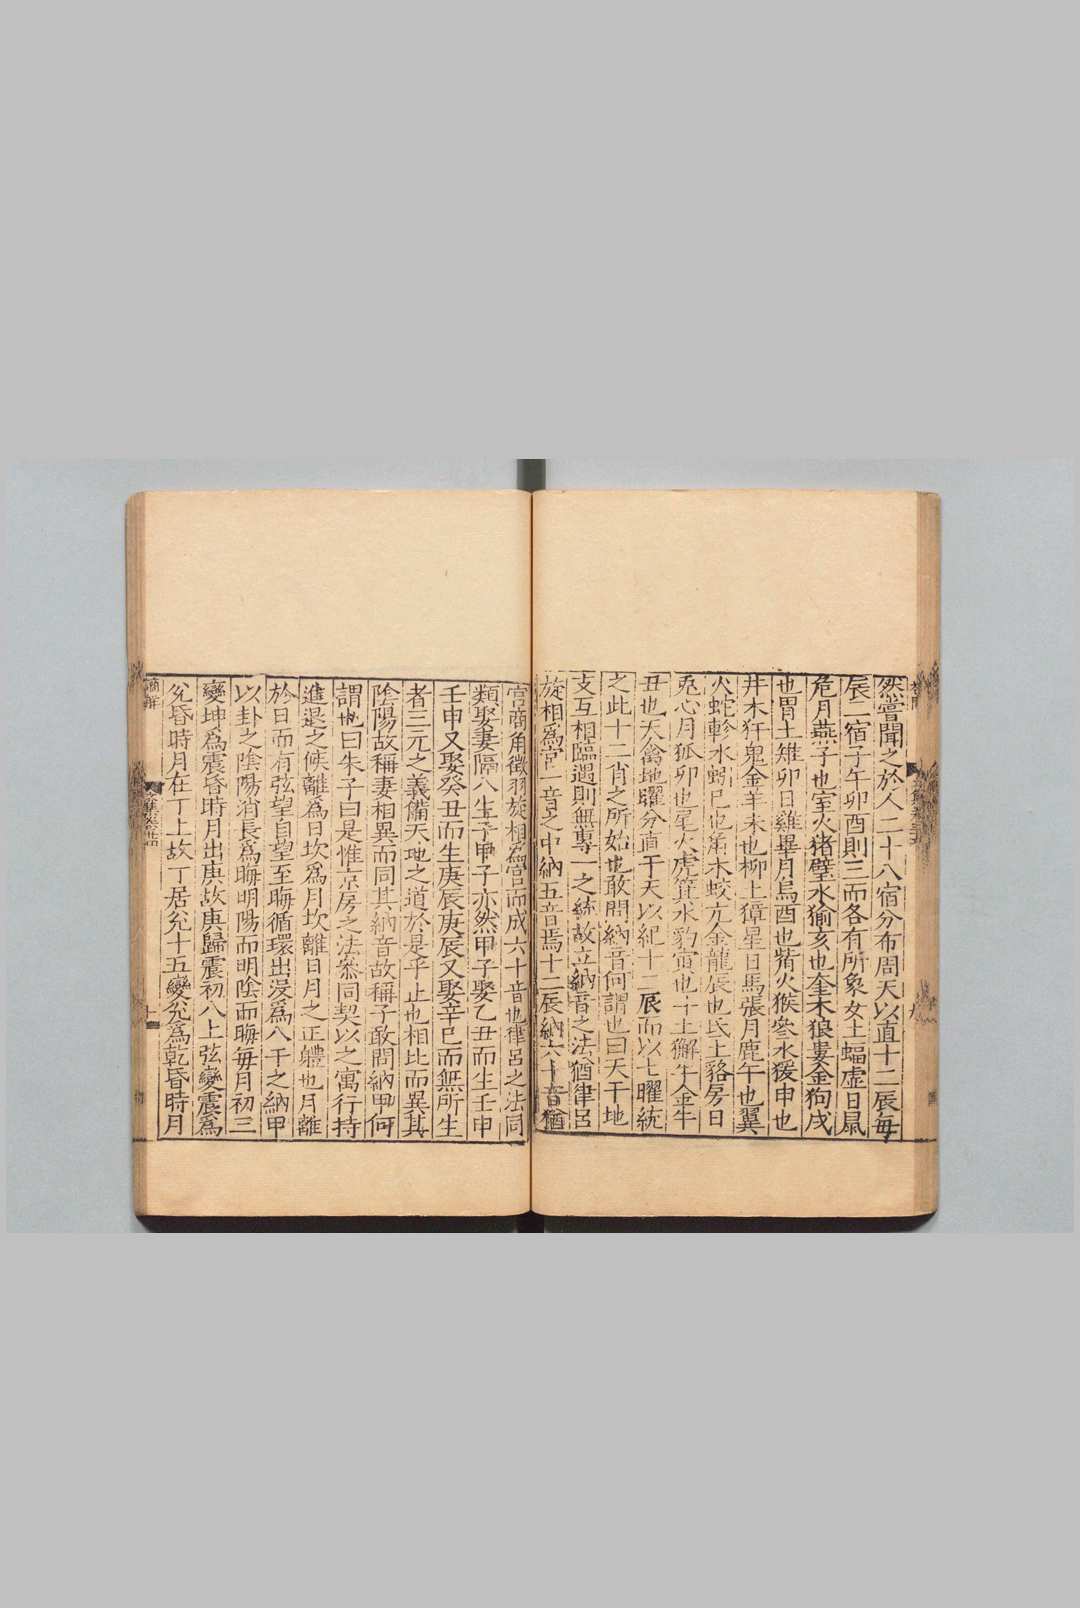 然嘗聞之於人二十八宿分布周天以直十二辰每
辰二宿子午卯酉則三而各有所象女土蝠虛日鼠
危月燕子也室火猪壁水㺄亥也奎木狼婁金狗戌
也胃土雉卯日雞畢月烏酉也觜火猴參水猨申也
井木犴鬼金羊未也柳土獐星日馬張月鹿午也翼
火蛇軫水蚓巳也角木蛟亢金龍辰也氐土貉房日
兎心月狐卯也尾火虎箕水豹寅也斗土獬牛金牛
丑也天禽地曜分直干天以紀十二辰而以七曜統
之此十二肖之所始也敢問納音何謂也曰天干地
支互相臨遇則無專一之統故立納音之法猶律呂
旋相爲宮一音之中納五音焉十二辰納六十音猶
宮商角徵羽旋相爲宮而成六十音也律呂之法同
類娶妻隔八生子甲子亦然甲子娶乙丑而生壬申
壬申又娶癸丑而生庚辰庚辰又娶辛巳而無所生
者三元之義備天地之道於是乎止也相比而異其
陰陽故稱妻相異而同其納音故稱子敢問納甲何
謂也曰朱子曰是惟京房之法叅同契以之寓行持
進退之候離爲日坎爲月坎離日月之正體也月離
於日而有弦望自望至晦循環出沒爲八干之納甲
以卦之陰陽消長爲晦明陽而明陰而晦每月初三
變坤爲震昏時月出庚故庚歸震初八上弦變震爲
兊昏時月在丁上故丁居兊十五變兊爲乾昏時月